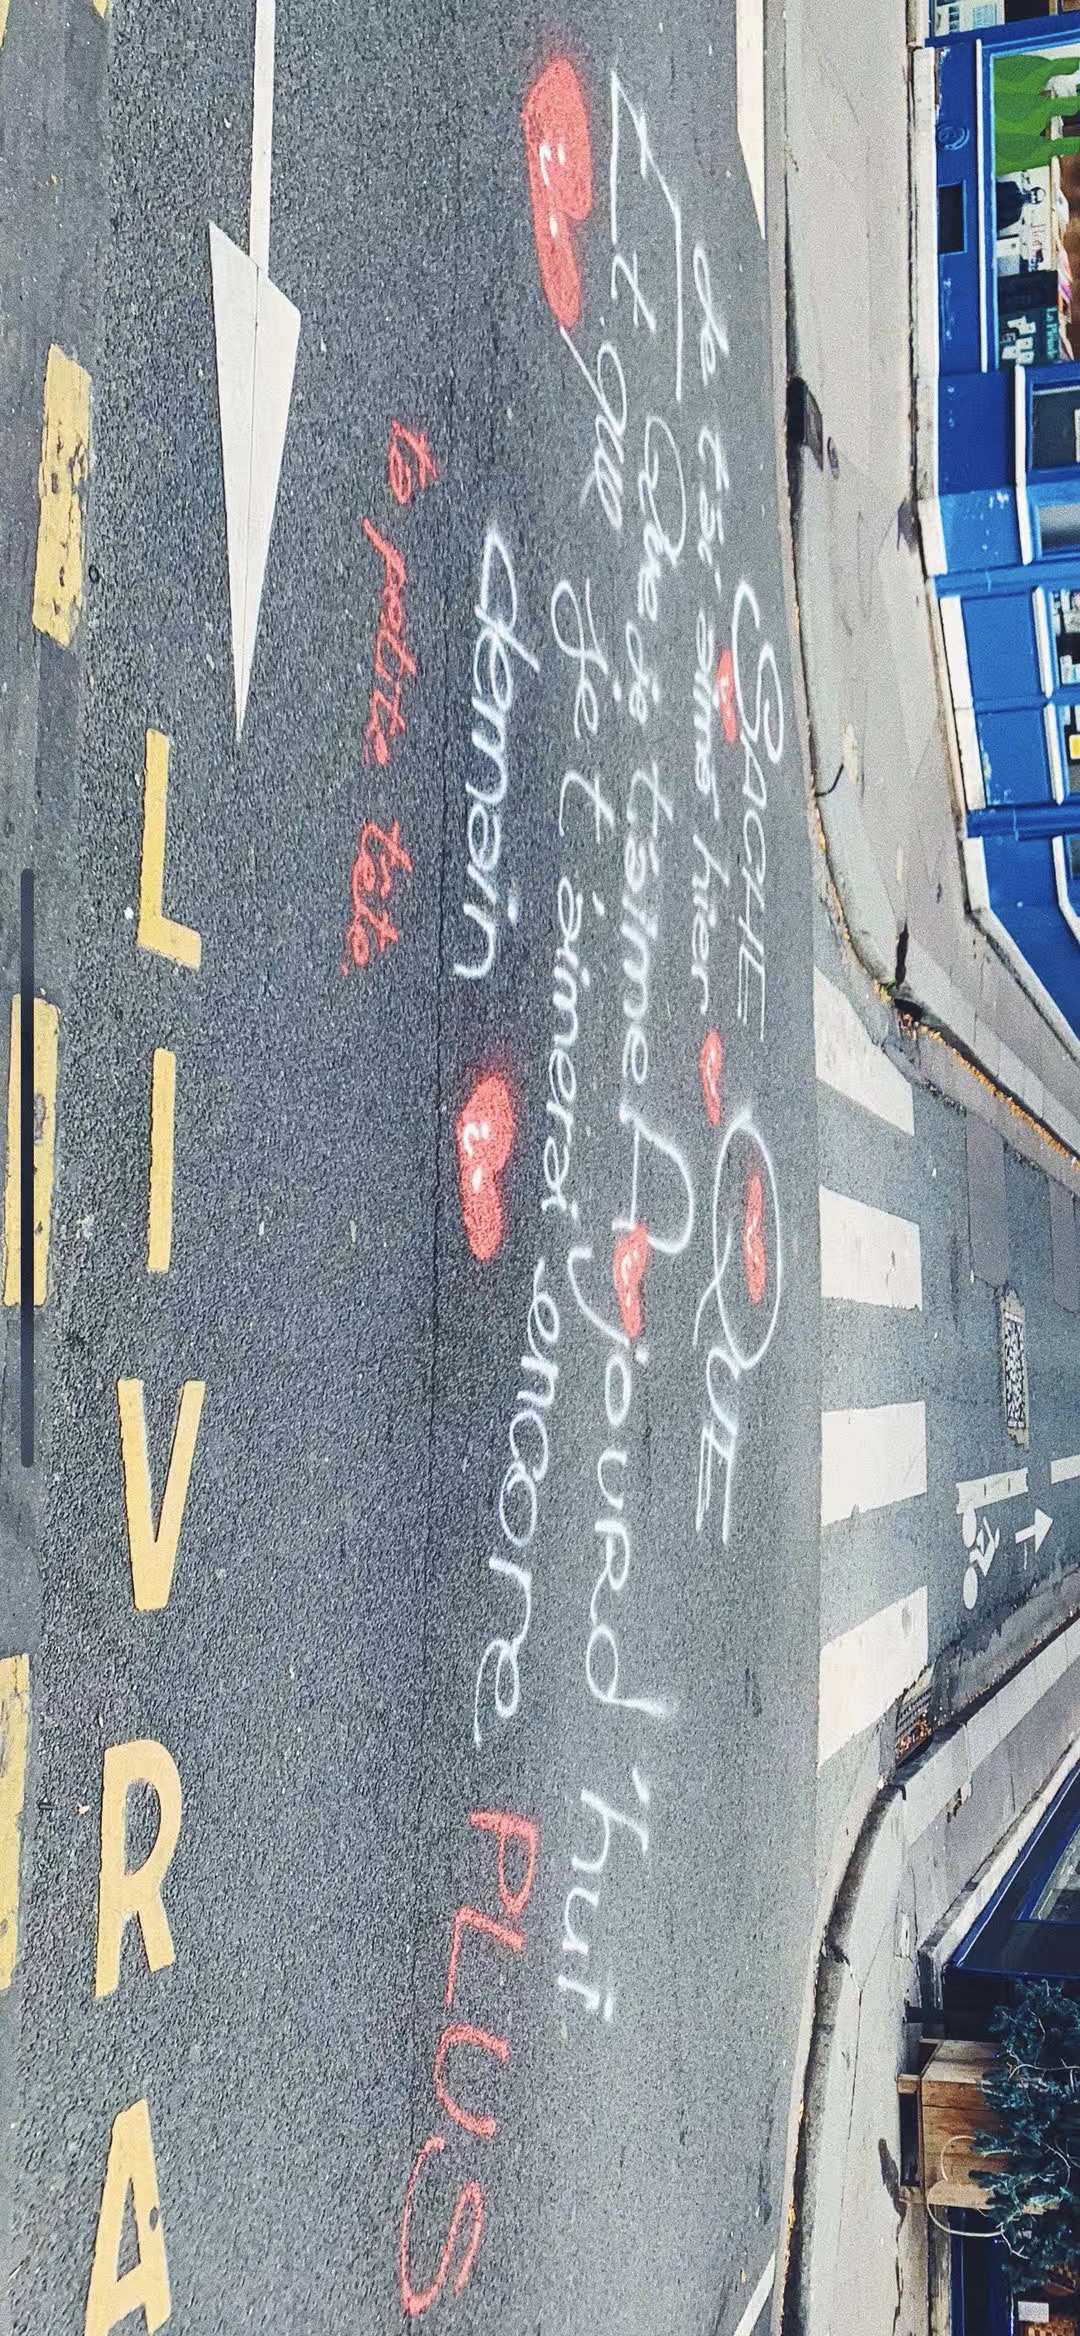 SACHE QUE
Je t'ai aimé hier
Et Que je t'aime Aujourd'hui
Et que je t'aimerai encore PLUS
demain
ta petite tête.
LIVRA